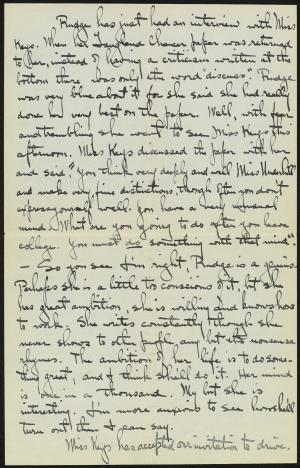 Rudge has just had an interview with Miss
Keys. When her Langland Chaucer paper was returned
to her, instead of having a criticism written at the
bottom there was only the word discuss. Rudge
was very blue about it for she said she had really
done her very best on the paper. Well, with fear
and trembling she went to see Miss Keys this
afternoon. Miss Keys discussed the paper with her
and said "You think very deeply and well Miss
and make very fine distinctions, though often you don't
express yourself well. You have a very unusual
mind. What are you going to do after you leave
college. You must do something with that mind"
— So you see I'm right, Rudge is a genius.
Perhaps she is a little too conscious of it, but she
has great ambition, she is willing and knows how
to work. She writes constantly though she
never shows to other people any but the nonsense
rhymes. The ambition of her life is to do some-
thing great, and I think she'll do it. Her mind
is one in a thousand. My but she is
interesting. I'm more anxious to see how she'll
turn out than I can say.
Miss Keys has accepted our invitation to drive.